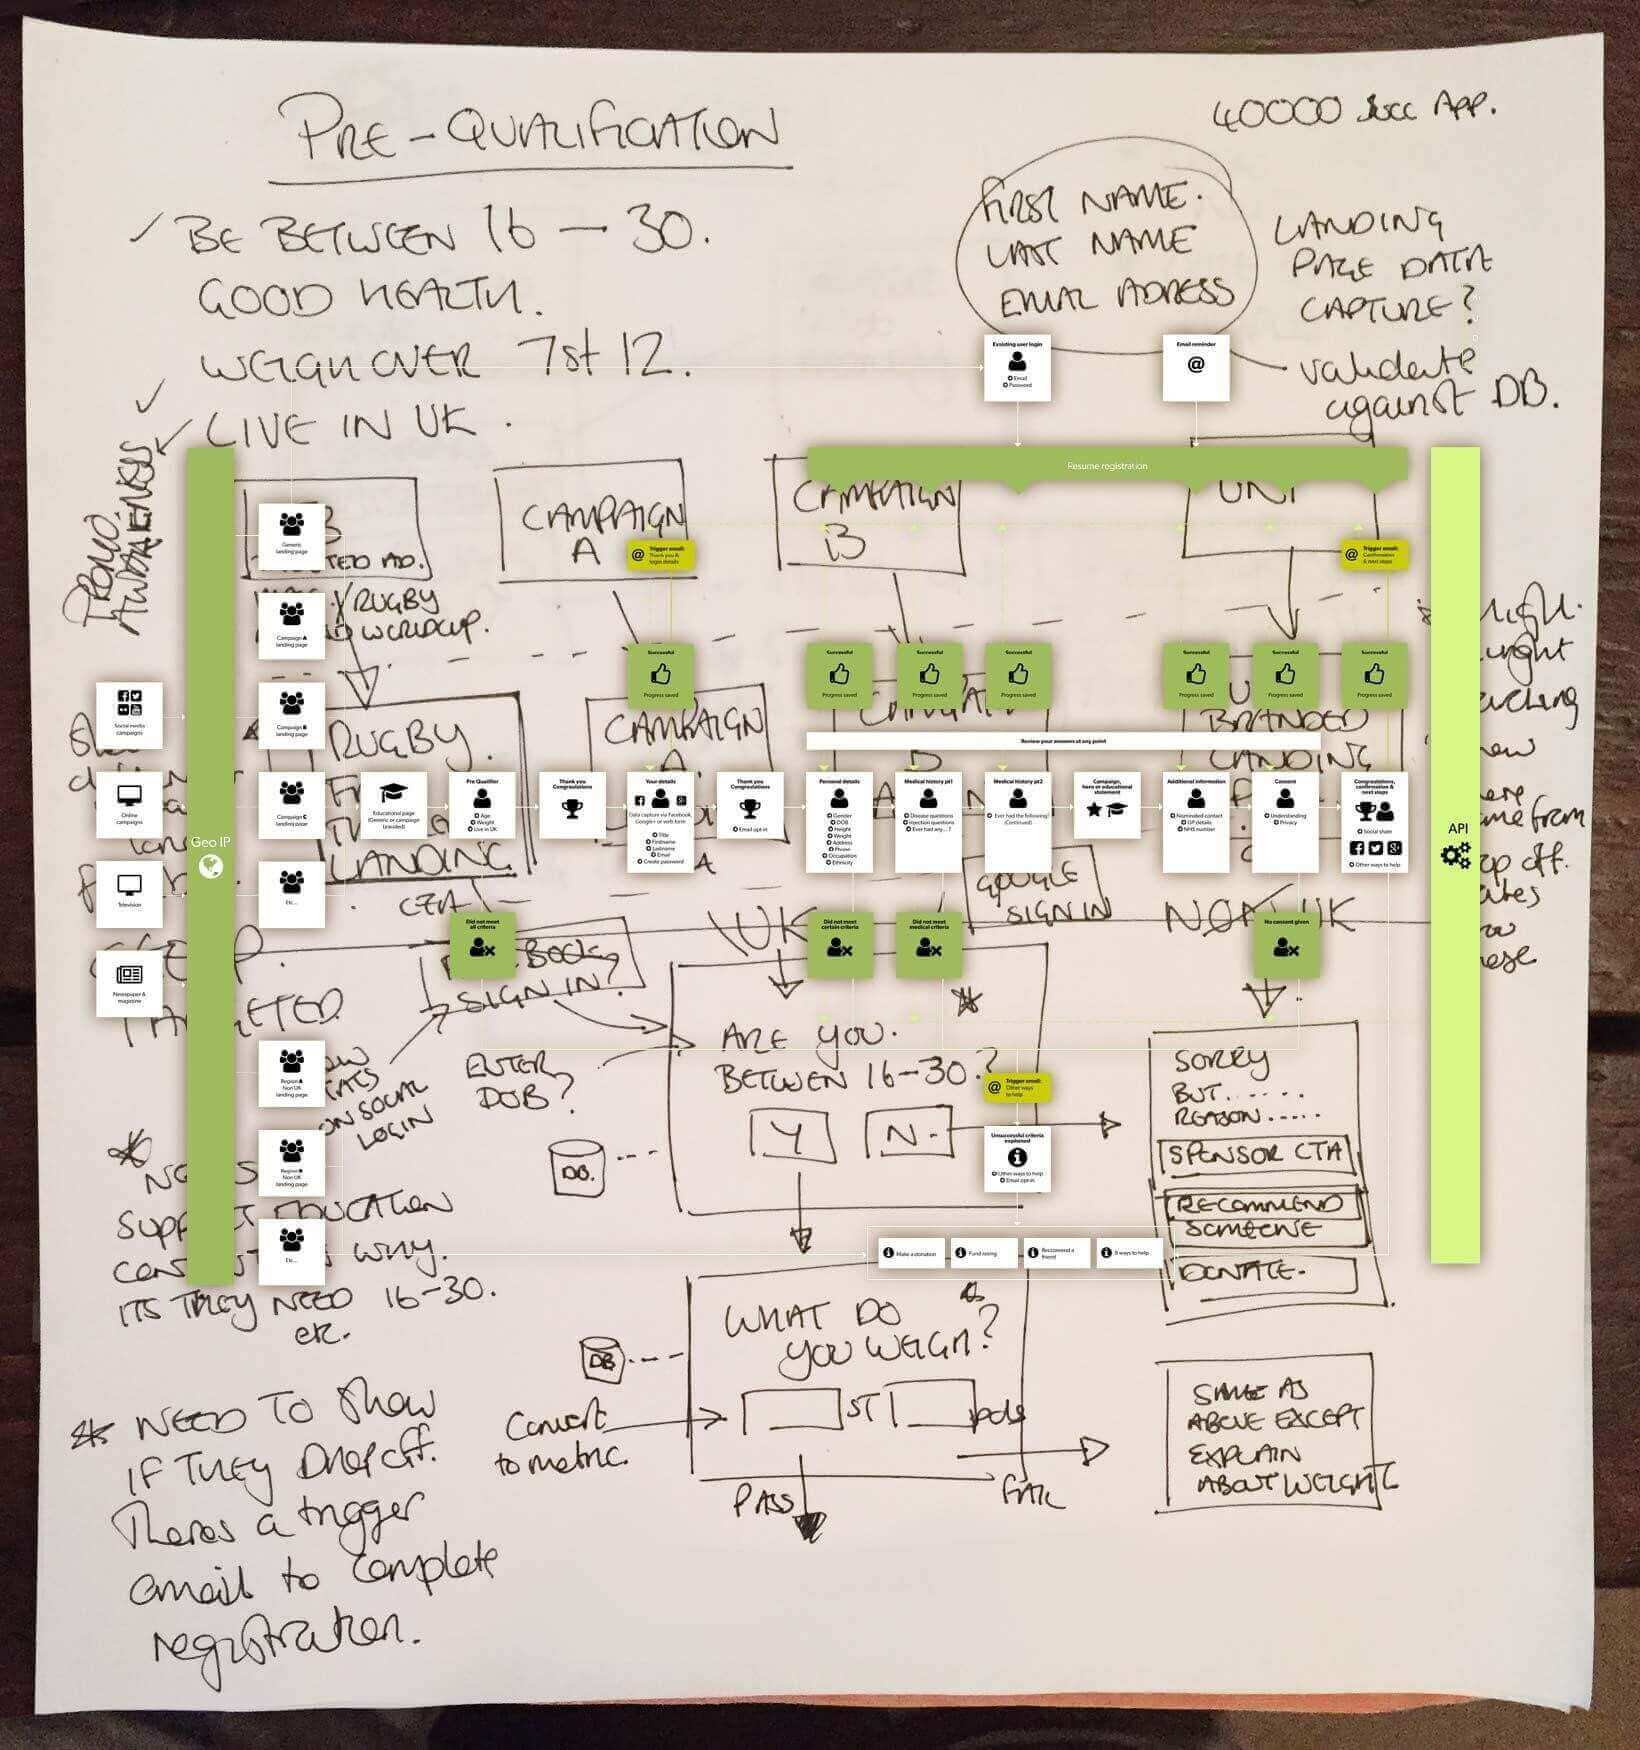 PRE-QUALIFICATION
40000 Succ App.
✓ BE BETWEEN 16 - 30.
GOOD HEALTH.
WEIGH OVER 7st 12.
✓ LIVE IN UK.
FIRST NAME.
LAST NAME
EMAIL ADRESS
LANDING
PAGE DATA
CAPTURE?
validate
against DB.
Existing user login
Email
Password
Email reminder
@
PROMO.
AWARENESS
Resume registration
CAMPAIGN
A
CAMPAIGN
B
RUGBY
WORLDCUP.
Generic
landing page
Campaign A
landing page
Campaign B
landing page
Campaign C
landing page
Etc...
@ Trigger email:
Thank you &
login details
@ Trigger email:
Confirmation
& next steps
Successful
Progress saved
Successful
Progress saved
Successful
Progress saved
Successful
Progress saved
Successful
Progress saved
Successful
Progress saved
Successful
Progress saved
RUGBY.
LANDING
CAMPAIGN
BRANDED
LANDING
Review your answers at any point
Social media
campaigns
Online
campaigns
Television
Newspaper &
magazine
Geo IP
API
Educational page
(Generic or campaign
branded)
Pre Qualifier
Age
Weight
Live in UK
Thank you
Congratulations
Your details
Data capture via Facebook,
Google+ or web form
Title
Firstname
Lastname
Email
Create password
Thank you
Congratulations
Email opt-in
Personal details
Gender
DOB
Height
Weight
Address
Phone
Occupation
Ethnicity
Medical history pt1
Disease questions
Injection questions
Ever had any...?
Medical history pt2
Ever had the following?
(Continued)
Campaign,
hero or educational
statement
Additional information
Nominated contact
GP details
NHS number
Consent
Understanding
Privacy
Congratulations,
confirmation &
next steps
Social share
Other ways to help
GOOGLE
SIGN IN
UK
NON UK
Did not meet
all criteria
Did not meet
certain criteria
Did not meet
medical criteria
No consent given
SIGN IN?
ENTER
DOB?
ON SOCIAL
LOGIN
ARE YOU.
BETWEEN 16-30?
Y
N.
DB.
@ Trigger email:
Other ways
to help
Unsuccessful criteria
explained
Other ways to help
Email opt-in
SORRY
BUT......
REASON.....
SPONSOR CTA
RECOMMEND
SOMEONE
DONATE.
Region A
Non UK
landing page
Region B
Non UK
landing page
Etc...
Make a donation
Fund raising
Reccomend a
friend
8 ways to help
EDUCATION
WHY.
ITS THEY NEED 16-30.
etc.
WHAT DO
YOU WEIGH?
DB
ST
pds
Convert
to metric.
PASS
FAIL
SAME AS
ABOVE EXCEPT
EXPLAIN
ABOUT WEIGHT
* NEED TO Show
IF THEY DROP Off.
Theres a trigger
email to complete
registration.